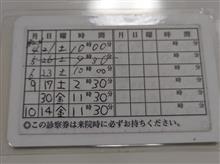 月 日 曜 時間 月 日 曜 時間
21 土 10時00分 時 分
5 26 金 9時30分 時 分
6 23 土 10時00分 時 分
9 17 土 2時30分 時 分
30 金 11時30分 時 分
10 14 金 11時30分 時 分
◎この診察券は来院時に必ずお持ちください。